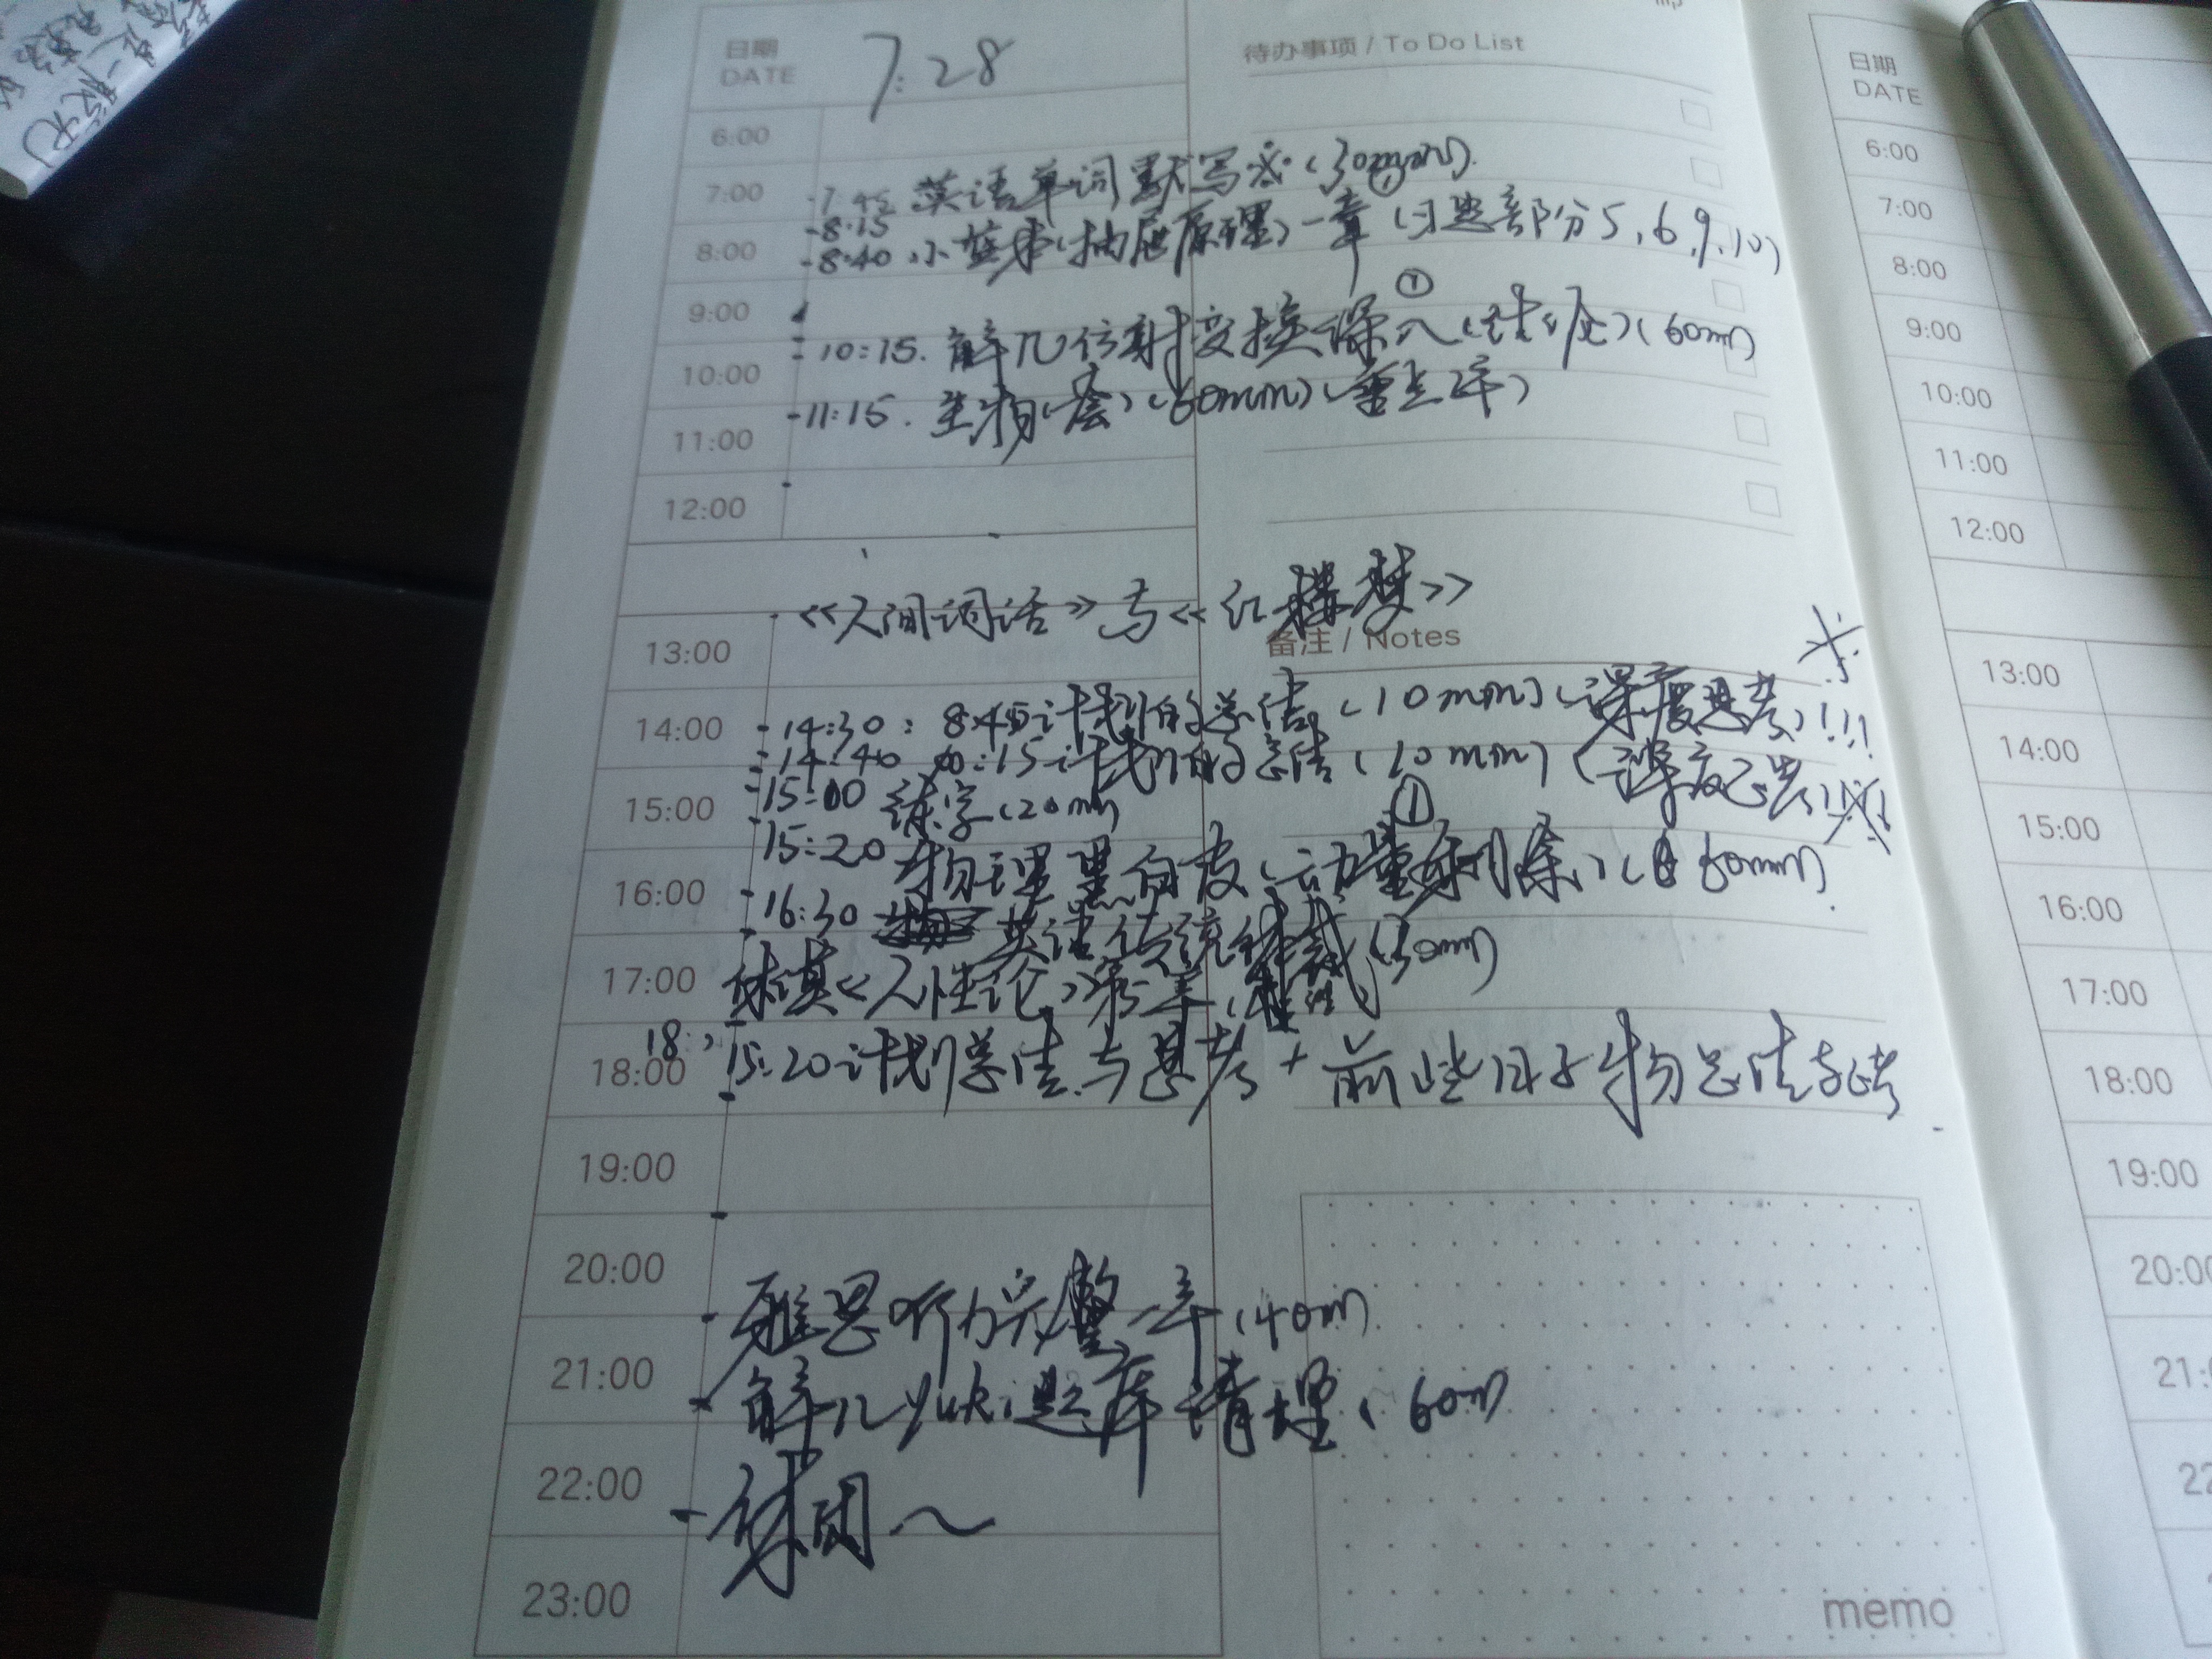 日期
DATE
7.28
待办事项 / To Do List
6:00
7:00
-7:45 英语单词默写 (30min)
-8:15
8:00
-8:40 小蓝本(抽屉原理)一章 (习题部分5,6,9,10)
9:00
①
-10:15. 解几仿射变换深入 (60min)
10:00
-11:15. 生物 (60min)
11:00
12:00
《人间词话》与《红楼梦》
备注 / Notes
13:00
14:00
-14:30: 8:45计划的总结 (10min) (深度思考)!!!
-14:40 10:15计划的总结 (10min) (深度思考)!!!
15:00
-15:00 练字 (20min
①
15:20 物理黑白皮 (动量删除) (60min)
16:00
-16:30 英语传统 (30min)
17:00
休谟《人性论》第
18:00
18:
15:20计划总结与思考+前些日子物总结思考
19:00
20:00
雅思听力完整一套 (40m)
21:00
解几 题库清理 (60m)
22:00
-休闲~
23:00
memo
日期
DATE
6:00
7:00
8:00
9:00
10:00
11:00
12:00
13:00
14:00
15:00
16:00
17:00
18:00
19:00
20:00
21:
22